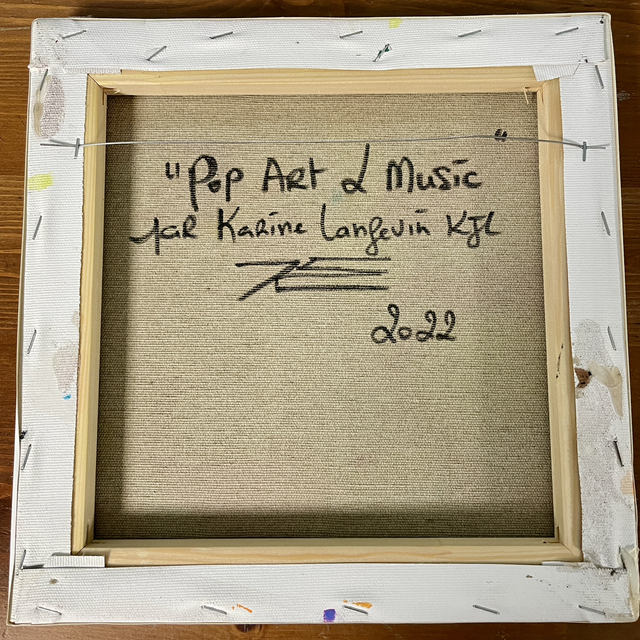 "Pop Art & Music"
par Karine Langevin KJL
2022